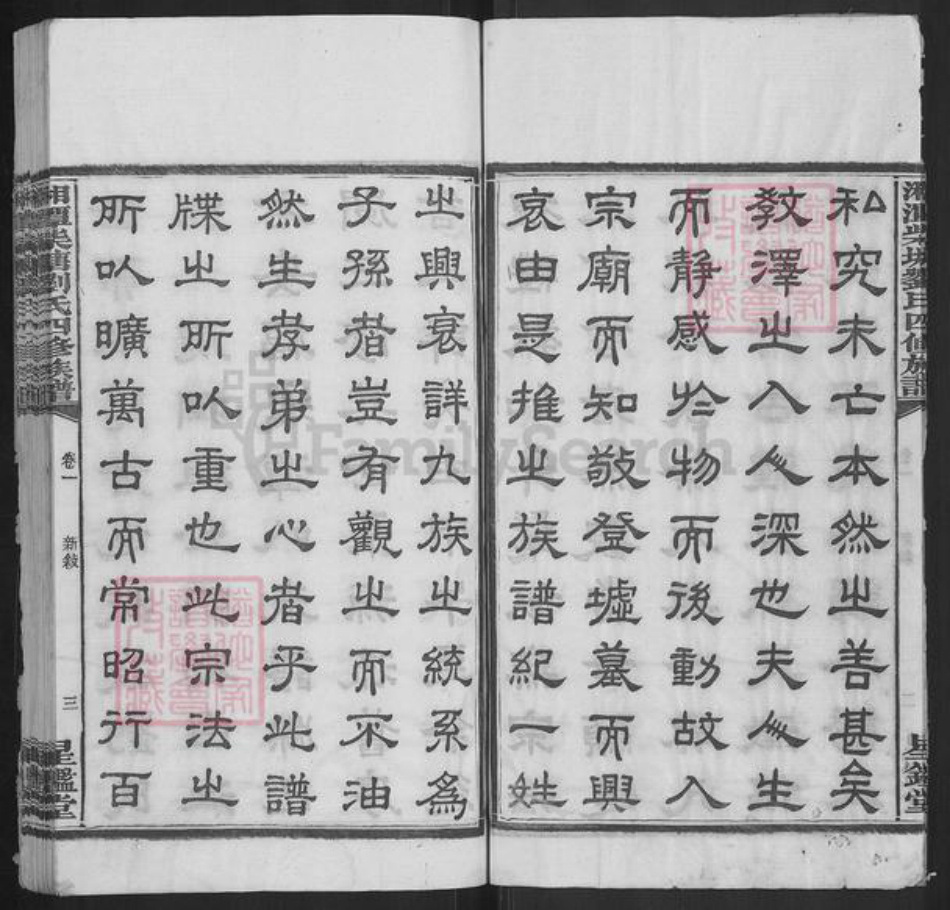 私究未亡本然之善甚矣
教澤之入人深也夫人生
而靜感於物而後動故入
宗廟而知敬登墟墓而興
哀由是推之族譜紀一宗一姓
之興衰詳九族之統系為
子孫者豈有觀之而不油
然生孝弟之心者乎此譜
牒之所以重也此宗法之
所以曠萬古而常昭行百
湘潭柴塘劉氏四修族譜
卷一
新敘
三
星鑑堂
FamilySearch